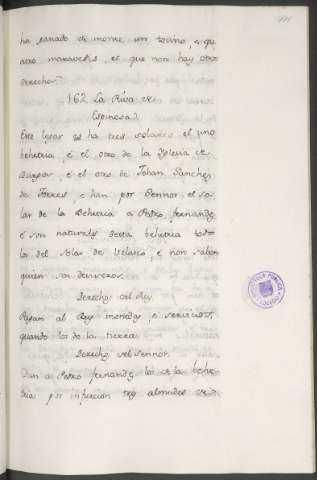 ha sanado di monte un tocino, e qu
atro maravedis, e que non hay otro
derecho.
162. La Riba de
Espinosa.
Este logar es ha tres solares el uno
behetria, e el otro de la Iglesia de
Burgos, e el otro de Johan Sanches
de Torres, e han por Sennor el so
lar de la Behetria a Pedro fernands
e son naturales desta behetria todo
los del Solar de Velasco, e non saben
quien son deviseros.
Derechos del Rey.
Pagan al Rey monedas, e servicios,
quando los de la tierra.
Derechos del Sennor.
Dan a Pedro fernands los de la behe
tria por infurcion tres almudes de